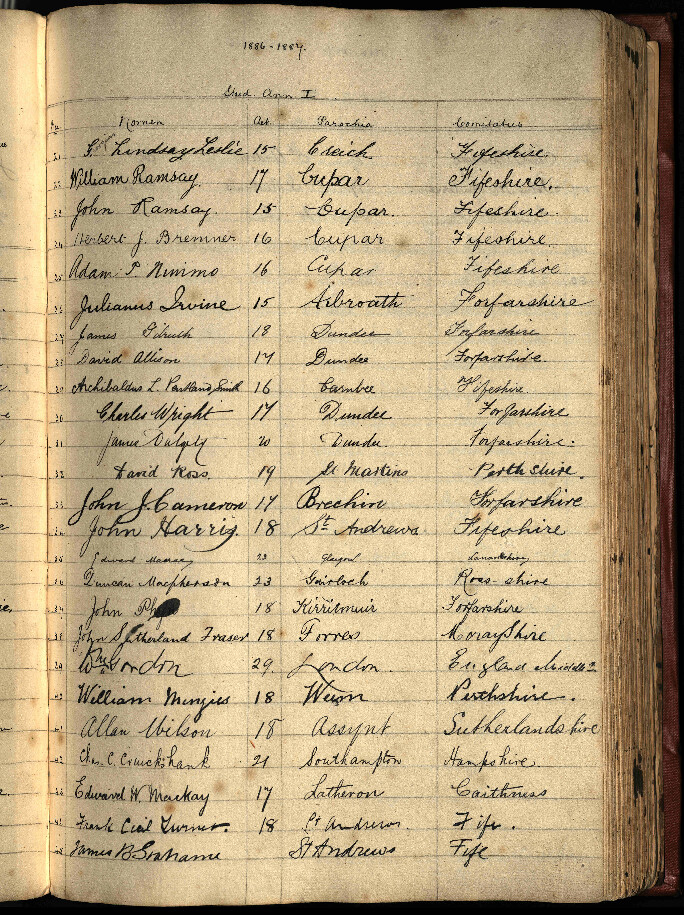 1886-1887.
Stud. Ann I.
No Nomen Aet. Parochia Comitatus
21 G. Lindsay Leslie 15 Creich Fifeshire.
22 William Ramsay. 17 Cupar Fifeshire.
23 John Ramsay. 15 Cupar. Fifeshire.
24 Herbert J. Bremner 16 Cupar Fifeshire.
25 Adam P. Nimmo 16 Cupar Fifeshire
26 Julianus Irvine 15 Arbroath Forfarshire
27 James Gilruth 18 Dundee Forfarshire
28 David Allison 17 Dundee Forfarshire.
29 Archibaldus L. Smith 16 Carnbee Fifeshire.
30 Charles Wright 17 Dundee Forfarshire
31 James Dalgety 20 Dundee Forfarshire.
32 David Ross. 19 St Martins Perthshire.
33 John J. Cameron 17 Brechin Forfarshire
34 John Harris. 18 St. Andrews Fifeshire
35 Edward 23 Glasgow Lanarkshire
36 Duncan Macpherson 23 Gairloch Ross-shire
37 John 18 Kirriemuir Forfarshire
38 John Sutherland Fraser 18 Forres Morayshire
39 Wm Gordon 29. London. England Middlx
40 William Menzies 18 Weem Perthshire.
41 Allan Wilson 18 Assynt Sutherlandshire
42 Chas. C. Cruickshank 21 Southampton Hampshire.
43 Edward W. Mackay 17 Latheron Caithness
44 Frank Cecil Turner. 18 St Andrews. Fife.
45 James B Grahame St Andrews Fife